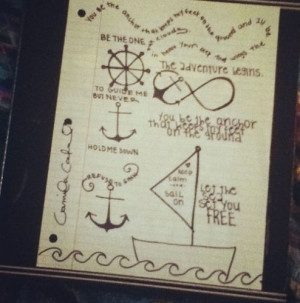 You Be the anchor that keeps my feet on the ground and I'll be
the wings that keep your
clouds
BE THE ONE
The adventure begins.
TO GUIDE ME
BUT NEVER
You be the anchor
that keeps my feet
on the ground
HOLD ME DOWN
REFUSE TO SINK
KEEP
calm
and
SAIL
ON
Let the
Sea
Set You
FREE